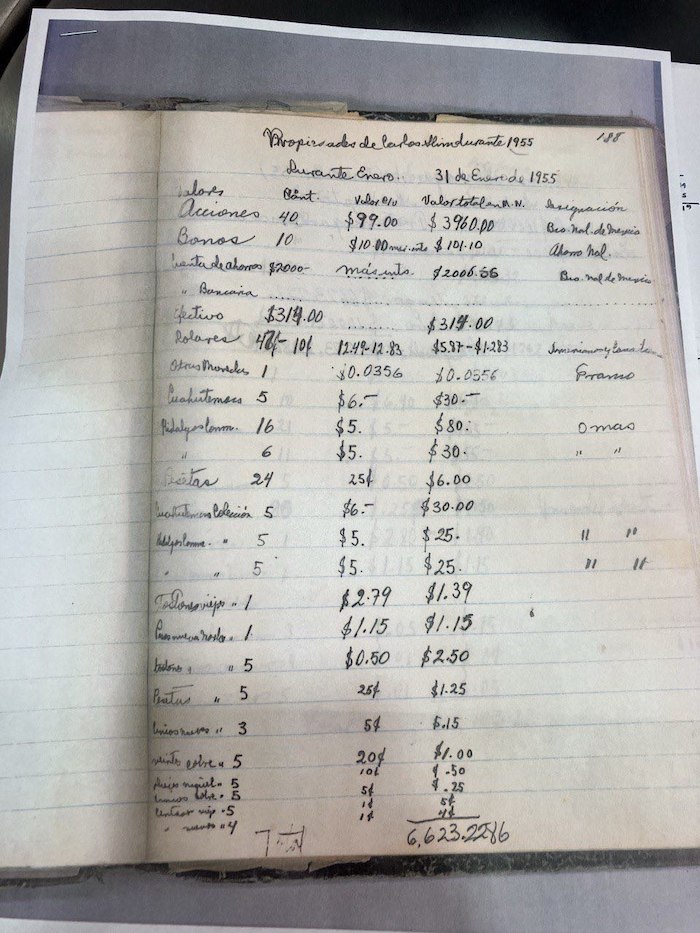 Propiedades de Carlos Slim durante 1955 188
Durante Enero. 31 de Enero de 1955
Valores Cant. Valor c/u Valor total en M.N. Designación
Acciones 40. $99.00 $3960.00 Bco. Nal. de Mexico
Bonos 10 $10.00 mas ints $101.10 Ahorro Nal.
Cuenta de ahorros $2000- más ints. $2006.66 Bco. Nal de Mexico
" Bancaria
Efectivo $314.00 $314.00
Dolares 12.49-12.83 $5.87-$1.283
Otras Monedas 1 $0.0356 $0.0356 Franco
Cuahutemocs 5 $6.- $30.-
Hidalgos Conm. 16 $5. $80.- O mas
" 6 $5. $30- " "
Pesetas 24 25¢ $6.00
Cuahutemocs Colección 5 $6.- $30.00
Hidalgos Conm. " 5 $5. $25. " "
" " 5 $5. $25. " "
Tostones viejos " 1 $2.79 $1.39
" 1 $1.15 $1.15
tostones " " 5 $0.50 $2.50
Pesetas " 5 25¢ $1.25
cincos nuevos " 3 5¢ $.15
veintes cobre " 5 20¢ $1.00
dieces niquel " 5 10¢ $.50
cincos cobre " 5 5¢ $.25
centavos viej. " 5 1¢ 5¢
" nuevos " 4 1¢ 4¢
Total 6,623.2286